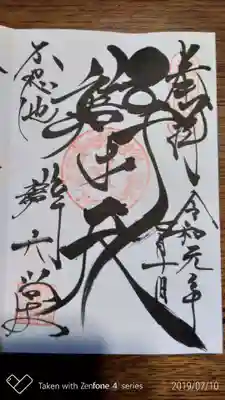 奉拝
令和元年
七月十日
辯才天
不忍池
辯天堂
Taken with Zenfone 4 series
2019/07/10